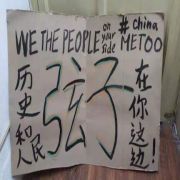 WE THE PEOPLE on your side # China
METOO
历史和人民
弦子
在你这边!